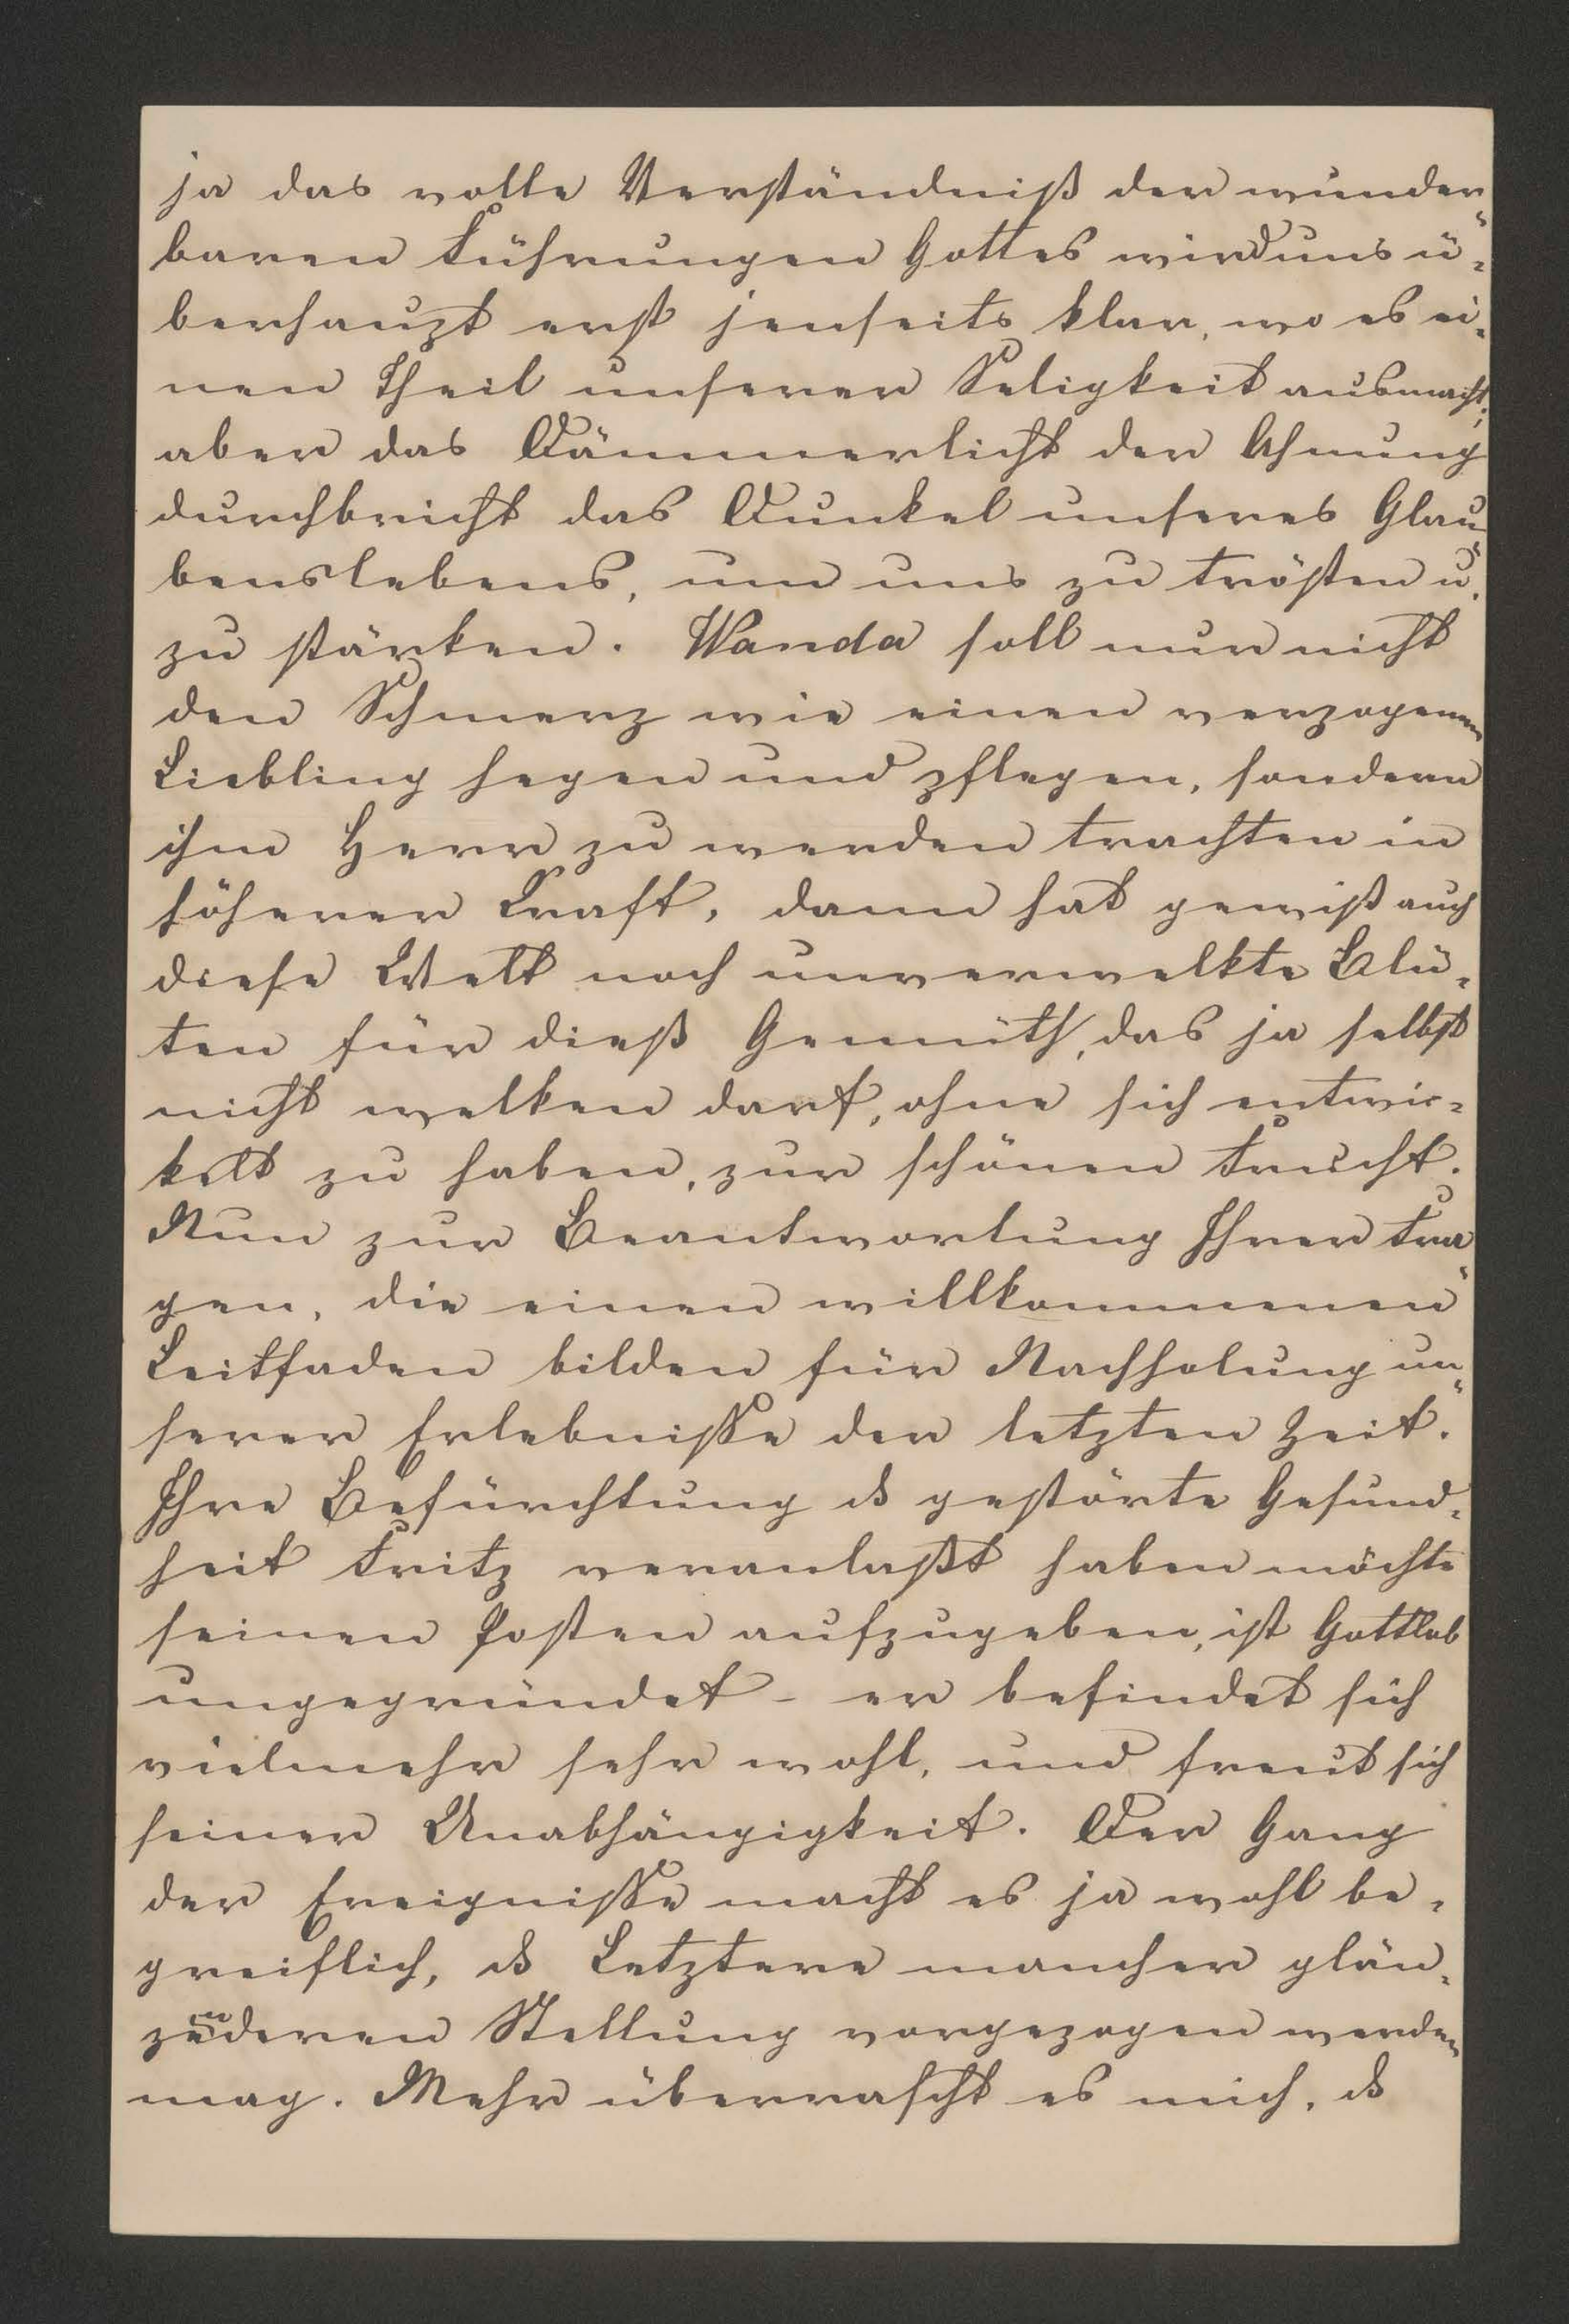 ja das volle Verständniß der wunder-
baren Führungen Gottes wird uns ü-
berhaupt erst jenseits klar, wo es ei-
nen Theil unserer Seligkeit ausmacht;
aber das Dämmerlicht der Ahnung
durchbricht das Dunkel unseres Glau-
benslebens, um uns zu trösten u.
zu stärken. Wanda soll nur nicht
den Schmerz wie einen verzogenen
Liebling hegen und pflegen, sondern
ihm Herr zu werden trachten in
höherer Kraft, dann hat gewiß auch
diese Welt noch unverwelkte Blü-
ten für dieß Gemüth, das ja selbst
nicht welken darf, ohne sich entwic-
kelt zu haben, zur schönen Frucht.
Nun zur Beantwortung Ihrer Fra-
gen, die einen willkommenen
Leitfaden bilden für Nachholung un-
serer Erlebnisse der letzten Zeit.
Ihre Befürchtung ds gestörte Gesund-
heit Fritz veranlaßt haben möchte
seinen Posten aufzugeben, ist Gottlob
ungegründet - er befindet sich
vielmehr sehr wohl, und freut sich
seiner Unabhängigkeit. Der Gang
der Ereignisse macht es ja wohl be-
greiflich, ds Letztere mancher glän-
zenderen Stellung vorgezogen werden
mag. Mehr überrascht es mich, ds